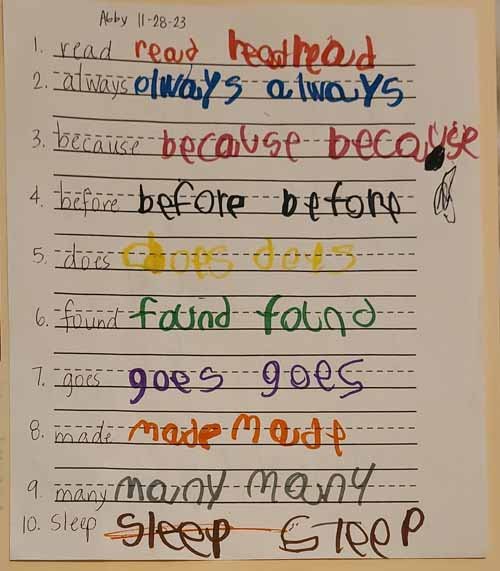 Abby 11-28-23
1. read read read read
2. always always always
3. because because because
4. before before before
5. does does does
6. found found found
7. goes goes goes
8. made made made
9. many many many
10. Sleep Sleep SleeP